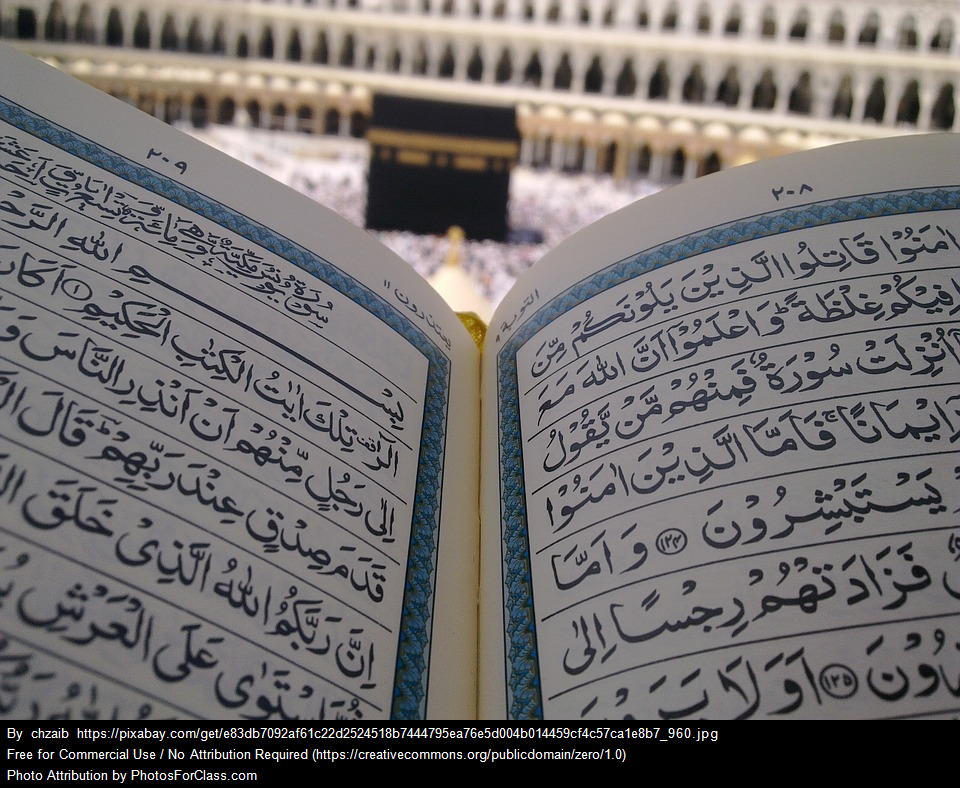 ٢٠٨
التوبة ٩
اٰمَنُوْا قَاتِلُوا الَّذِيْنَ يَلُوْنَكُمْ مِّنَ
فِيْكُمْ غِلْظَةً ؕ وَاعْلَمُوْۤا اَنَّ اللّٰهَ مَعَ
اُنْزِلَتْ سُوْرَةٌ فَمِنْهُمْ مَّنْ يَّقُوْلُ
اِيْمَانًا ۚ فَاَمَّا الَّذِيْنَ اٰمَنُوْا
يَسْتَبْشِرُوْنَ ﴿١٢٤﴾ وَ اَمَّا
فَزَادَتْهُمْ رِجْسًا اِلٰى
﴿١٢٥﴾ اَوَلَا يَرَوْنَ
٢٠٩
يعتذرون ١١
سُوْرَةُ يُوْنُسَ مَكِّيَّةٌ
بِسْمِ اللّٰهِ
الٓرٰ تِلْكَ اٰيٰتُ الْكِتٰبِ الْحَكِيْمِ ﴿١﴾ اَكَانَ
اِلٰى رَجُلٍ مِّنْهُمْ اَنْ اَنْذِرِ النَّاسَ
قَدَمَ صِدْقٍ عِنْدَ رَبِّهِمْ ؕ قَالَ
اِنَّ رَبَّكُمُ اللّٰهُ الَّذِىْ خَلَقَ
اسْتَوٰى عَلَى الْعَرْشِ
By chzaib https://pixabay.com/get/e83db7092af61c22d2524518b7444795ea76e5d004b014459cf4c57ca1e8b7_960.jpg
Free for Commercial Use / No Attribution Required (https://creativecommons.org/publicdomain/zero/1.0)
Photo Attribution by PhotosForClass.com